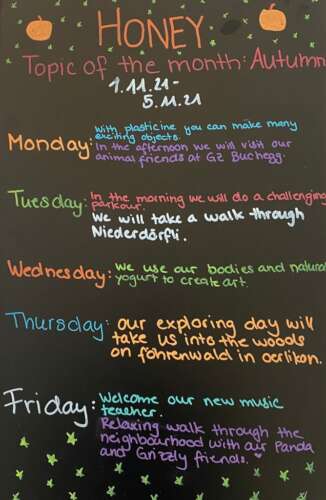 HONEY
Topic of the month: Autumn
1.11.21-
5.11.21
Monday: With plasticine you can make many
exciting objects.
In the afternoon we will visit our
animal friends at GZ Buchegg.
Tuesday: In the morning we will do a challenging
parkour.
We will take a walk through
Niederdörfli.
Wednesday: We use our bodies and natural
yogurt to create art.
Thursday: our exploring day will
take us into the woods
on föhrenwald in oerlikon.
Friday: Welcome our new music
teacher.
Relaxing walk through the
neighbourhood with air Panda
and Grizzly friends.